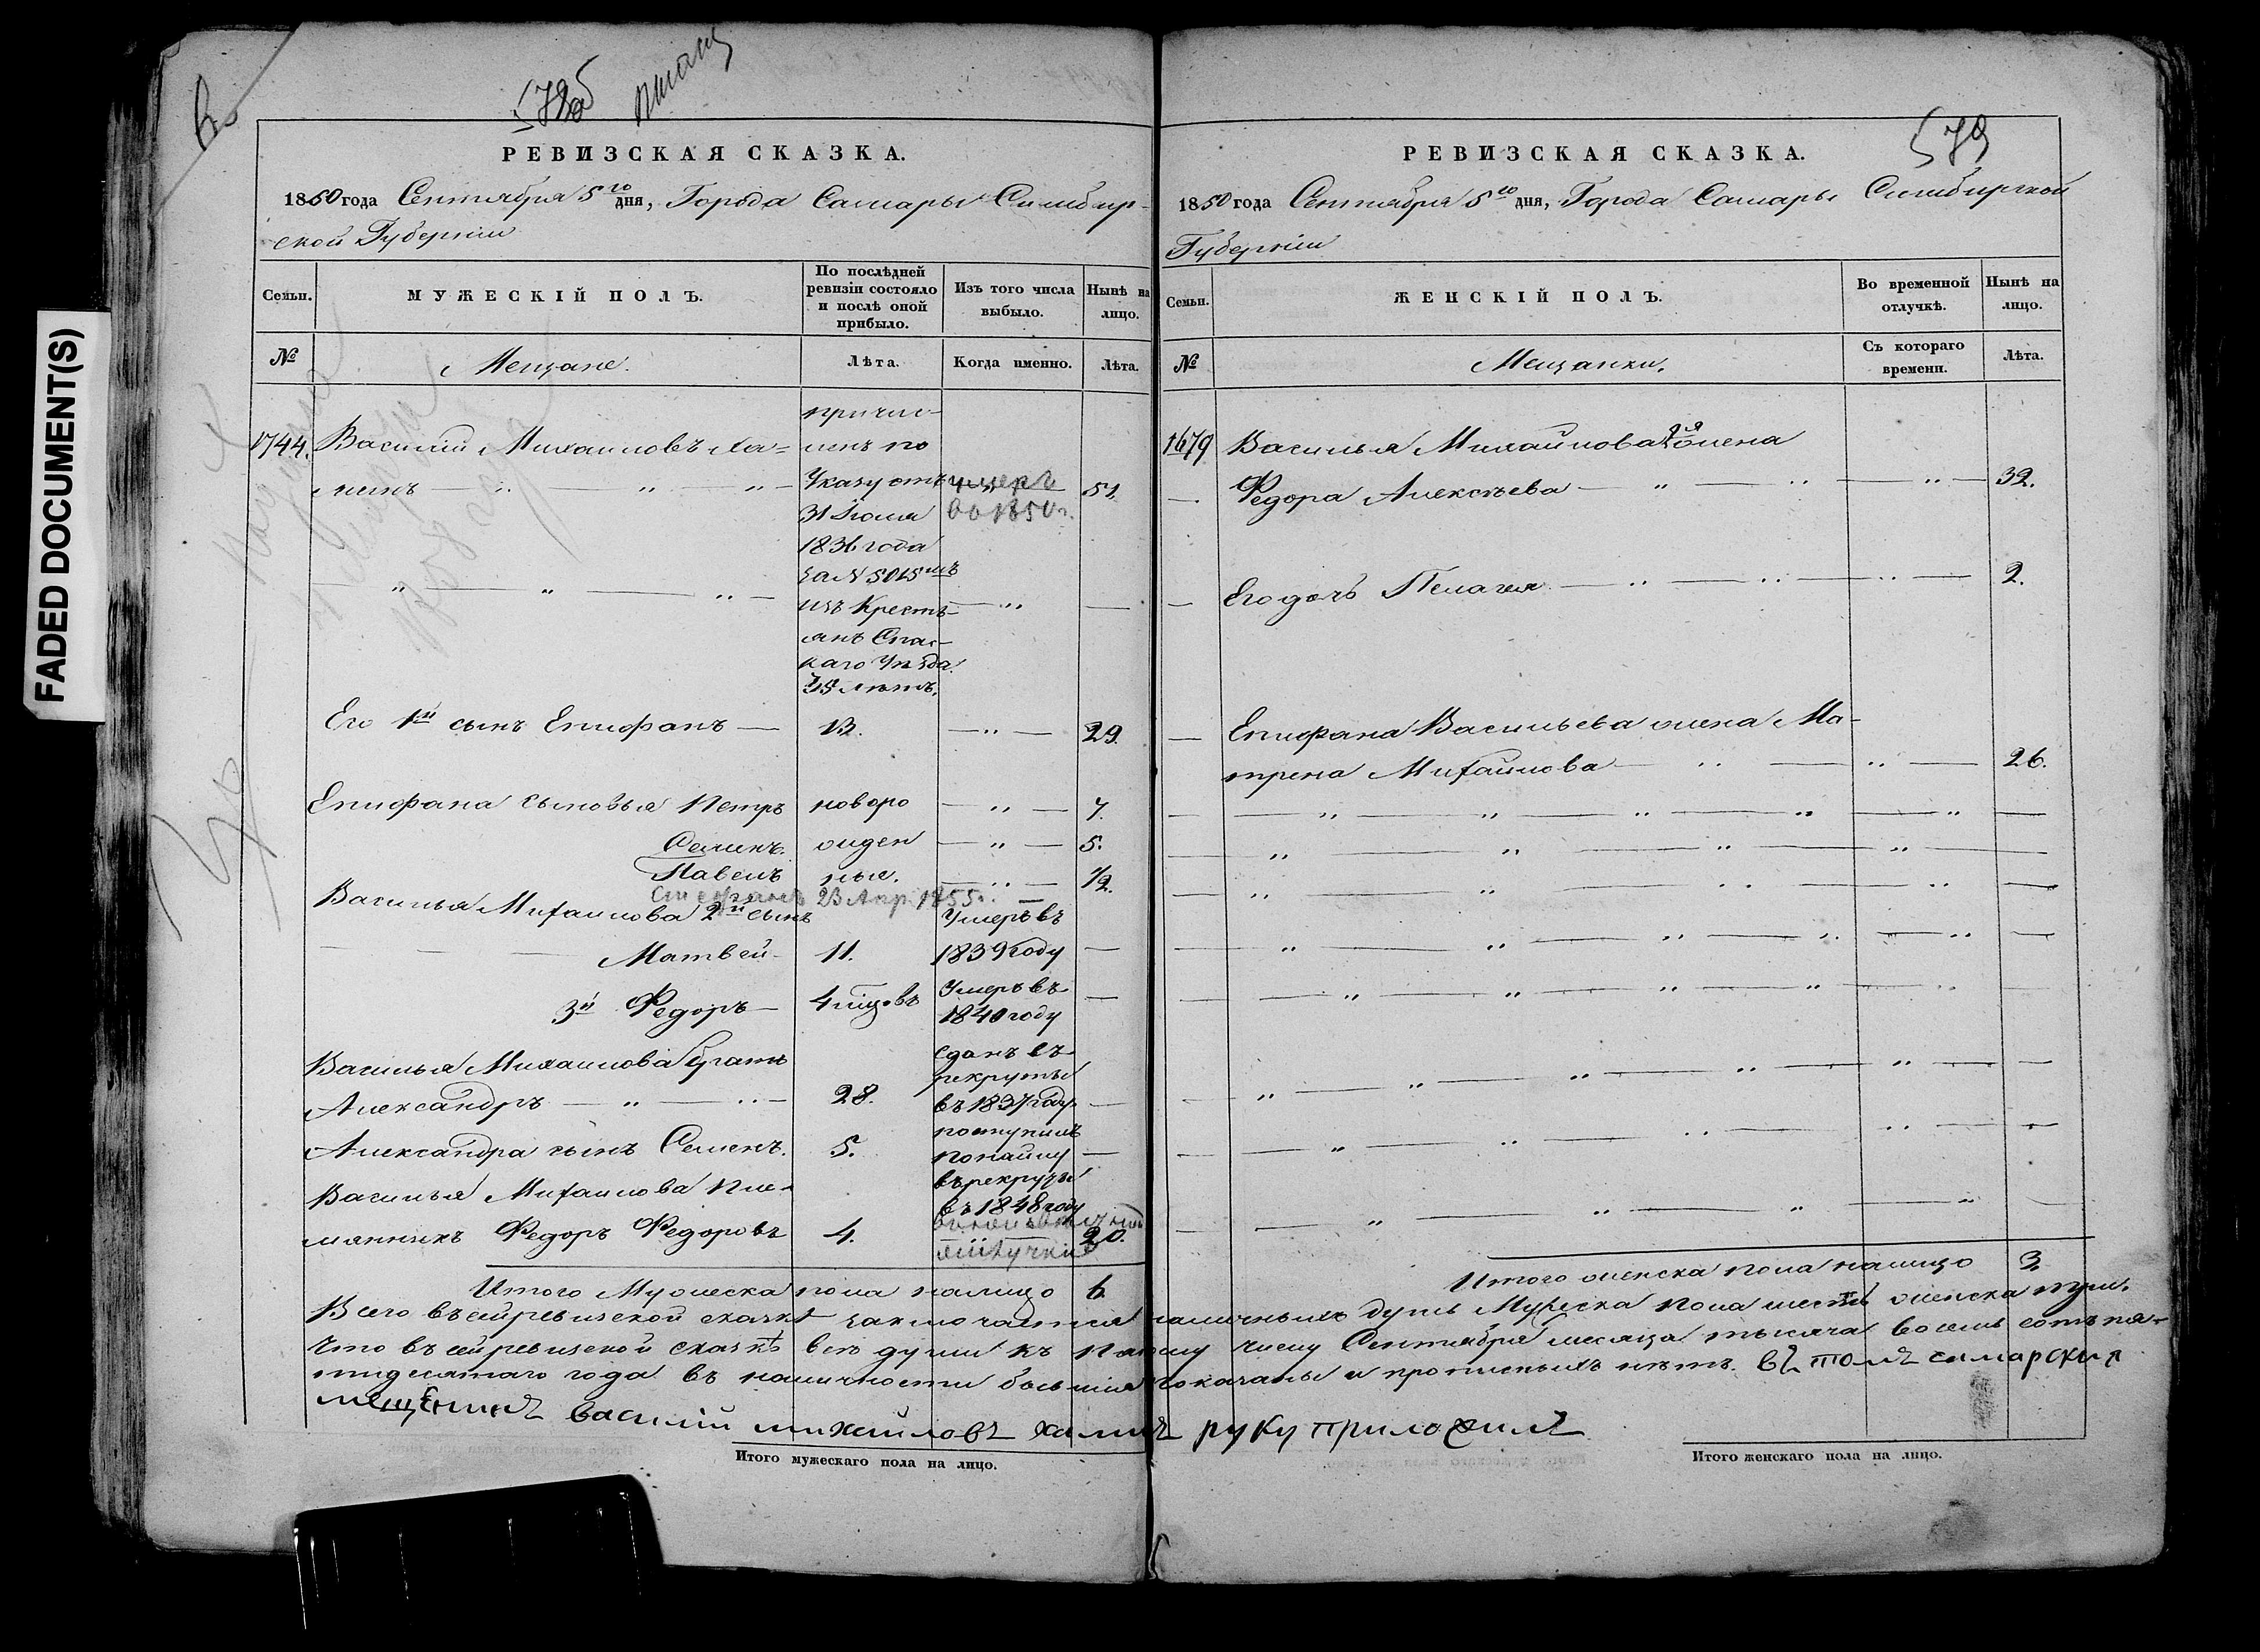 FADED DOCUMENT(S)
578об
РЕВИЗСКАЯ СКАЗКА.
1850 года Сентября 5го дня, Города Самары Симбир-
ской Губернии
Семьи.
МУЖЕСКІЙ ПОЛЪ.
По послѣдней ревизіи состояло и послѣ оной прибыло.
Изъ того числа выбыло.
Нынѣ на лицо.
№
Мещане.
Лѣта.
Когда именно.
Лѣта.
1744. Василий Михаиловъ Ха=
линъ
причис-
ленъ по
Указу отъ
31 Июля
1836 года
за № 5015мъ
изъ Кресть-
янъ Спас-
каго Уѣзда
35 лѣтъ.
умеръ
во 1850 г.
51.
Его 1й сынъ Епифанъ — 13. — 29.
Епифана сыновья Петръ новоро — 7.
Семенъ. ожден — 5.
Павелъ ные. — 1/2.
Стефанъ 23 Апр. 1855
Василья Михаилова 2й сынъ
Матвей 11. Умеръ въ 1839 году —
3й Федоръ — 4 мцовъ Умеръ въ 1840 году —
Василья Михаилова братъ
Александръ — 28. Сданъ въ рекруты въ 1837 году —
Александра сынъ Семенъ. 5. поступилъ по найму въ рекруты въ 1848 году —
Василья Михаилова пле-
мянникъ Федоръ Федоровъ 4. 20.
Итого Мужеска пола налицо 6
РЕВИЗСКАЯ СКАЗКА.
579
1850 года Сентября 5го дня, Города Самары Симбирской
Губернии
Семьи.
ЖЕНСКІЙ ПОЛЪ.
Во временной отлучкѣ.
Нынѣ на лицо.
№
Мещанки.
Съ котораго времени.
Лѣта.
1679 Василья Михайлова 2я жена
Федора Алексѣева — 39.
Его дочь Пелагея — 2.
Епифана Васильева жена Ма-
трена Михаилова — 26.
Итого женска пола налицо 3.
Всего въ сей ревизской сказкѣ заключается наличныхъ душъ Мужеска пола шесть женска три.
Что въ сей ревизской сказкѣ все души къ пятому числу Сентября месяца тысяча восемь сотъ пя-
тидесятаго года въ наличности бывшия показаны и прописныхъ нѣтъ. въ томъ самарския
мещенинъ василий михайловъ халинъ руку приложилъ
Итого мужескаго пола на лицо.
Итого женскаго пола на лицо.